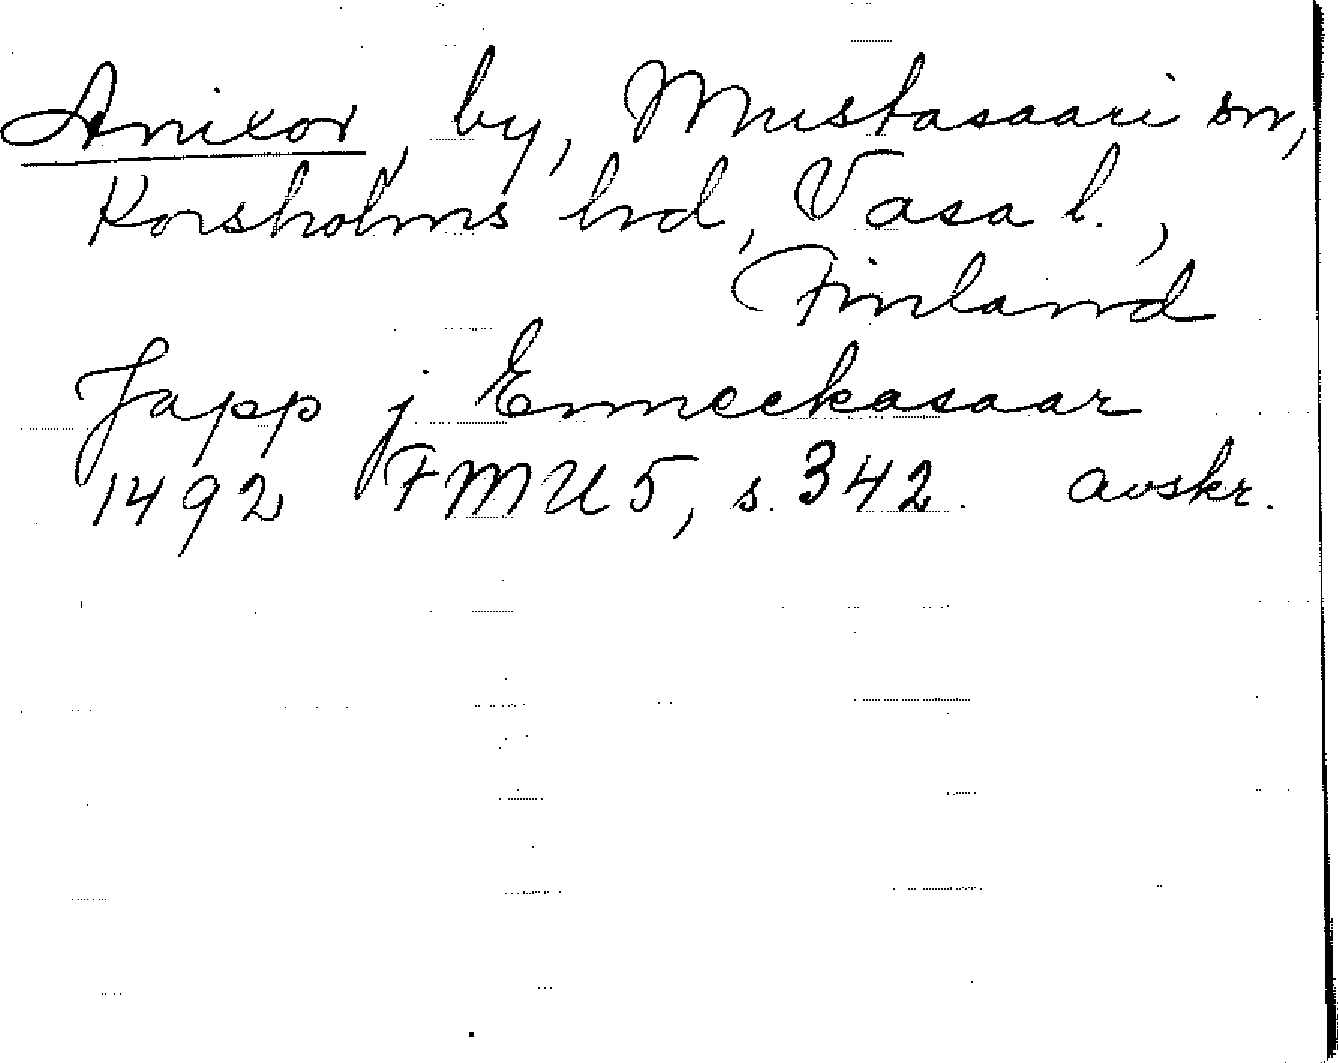 Anixor, by, Mustasaari sn,
Korsholms hd, Vasa l.,
Finland
Japp j Enneckasaar
1492 FMU 5, s. 342. avskr.